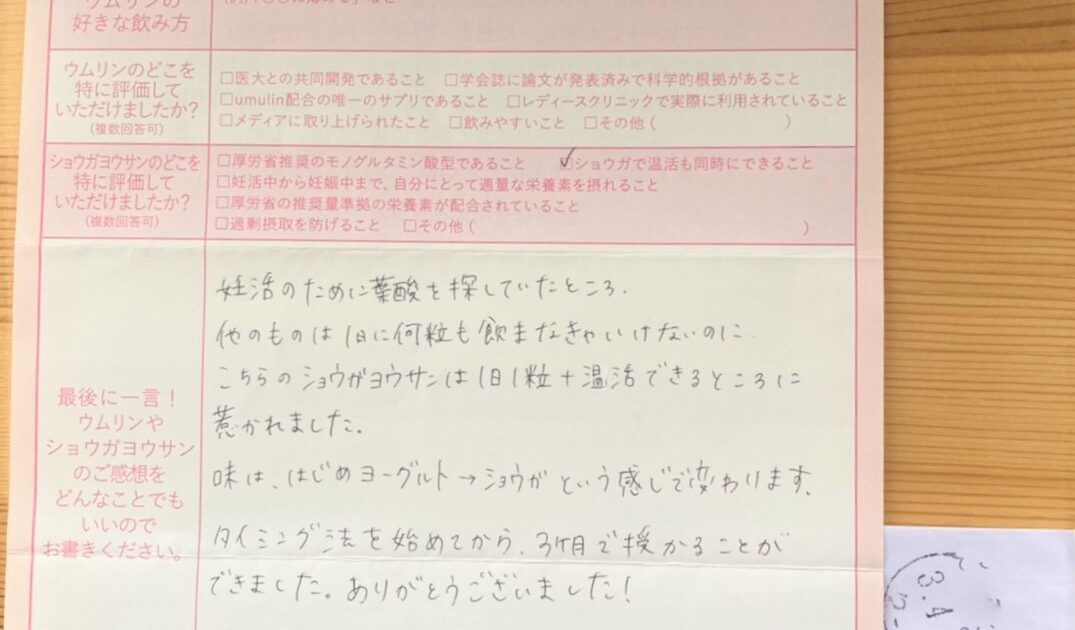 ウムリンの
好きな飲み方
ウムリンのどこを
特に評価して
いただけましたか?
(複数回答可)
□医大との共同開発であること □学会誌に論文が発表済みで科学的根拠があること
□umulin配合の唯一のサプリであること □レディースクリニックで実際に利用されていること
□メディアに取り上げられたこと □飲みやすいこと □その他( )
ショウガヨウサンのどこを
特に評価して
いただけましたか?
(複数回答可)
□厚労省推奨のモノグルタミン酸型であること ☑ショウガで温活も同時にできること
□妊活中から妊娠中まで、自分にとって適量な栄養素を摂れること
□厚労省の推奨量準拠の栄養素が配合されていること
□過剰摂取を防げること □その他( )
最後に一言!
ウムリンや
ショウガヨウサン
のご感想を
どんなことでも
いいので
お書きください。
妊活のために葉酸を探していたところ、
他のものは1日に何粒も飲まなきゃいけないのに
こちらのショウガヨウサンは1日1粒+温活できるところに
惹かれました。
味は、はじめヨーグルト→ショウガという感じで変わります。
タイミング法を始めてから、3ヶ月で授かることが
できました。ありがとうございました!
3.4